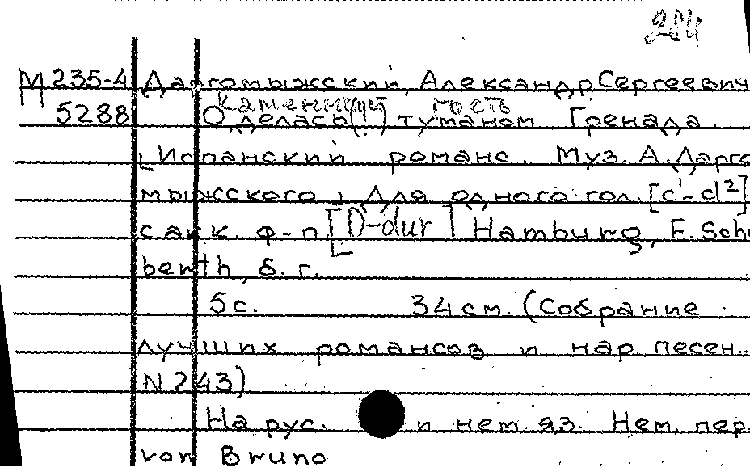 М 235-4 Даргомыжский, Александр Сергеевич
Каменный гость
5288 Оделась(!) туманом Гренада.
[Испанский романс. Муз. А. Дарго
мыжского] Для одного гол. [c¹-d²]
с акк. ф-п [D-dur] Hamburg, E. Schu
berth, б. г.
5 с. 34 см. (Собрание
лучших романсов и нар. песен.
N 243)
На рус. и нем. яз. Нем. пер.
von Bruno